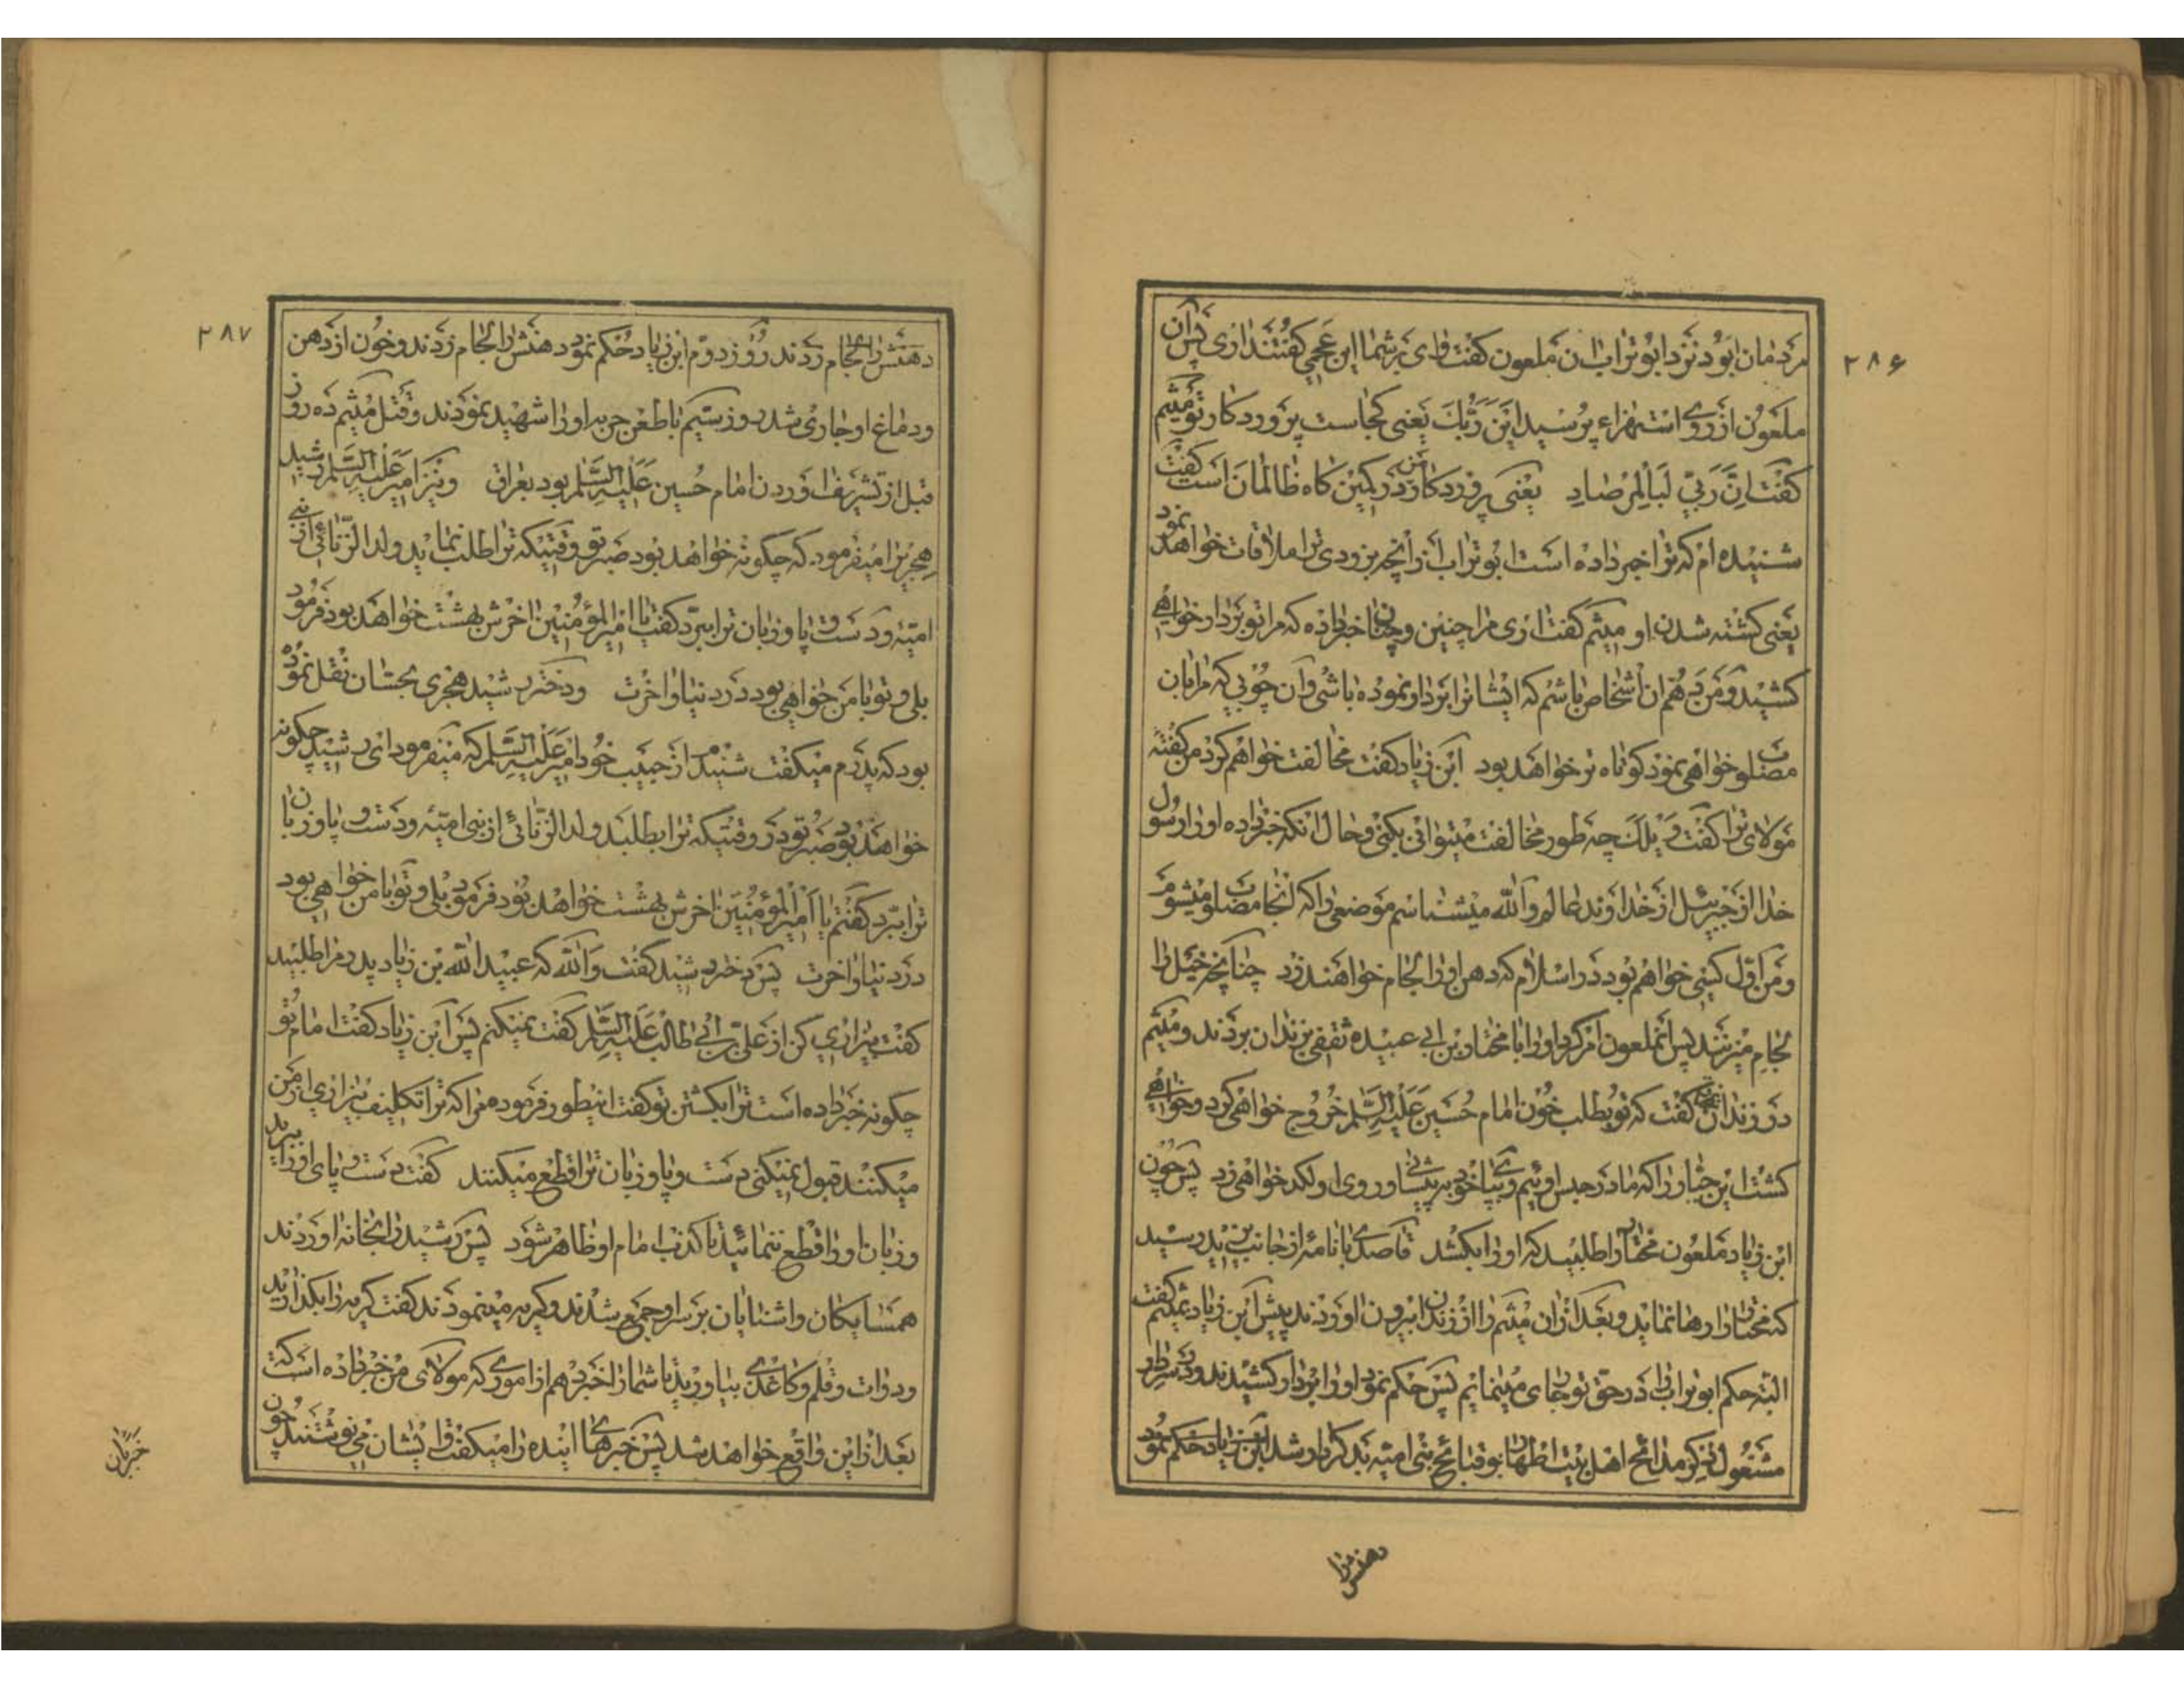 ۲۸۶
مردمان بود نزد ابو تراب ان ملعون کفت وای بر شما این عجمی کفتند اری پس آن
ملعون از روی استهزاء پرسید این ربك یعنی کجاست پروردکار تو میثم
کفت ان ربي لبالمرصاد یعنی پروردکار من در کمین کاه ظالمان است کفت
شنیده ام که ترا خبر داده است ابو تراب از آنچه بزودی ترا ملاقات خواهد نمود
یعنی کشته شدن او میثم کفت اری مرا چنین و چنان خبر داده که مرا تو بردار خواهی
کشید و من دهم ان اشخاص باشم که ایشانرا بردار نموده باشی و آن چوبی که مرا بان
مصلوب خواهی نمود کوتاه تر خواهد بود ابن زیاد کفت مخالفت خواهم کرد من کفته
مولای ترا کفت ویلك چه طور مخالفت میتوانی بکنی و حال انکه خبر داده او از رسول
خدا از جبرئیل از خداوند عالم والله میشناسم موضعی را که انجا مصلوب میشوم
و من اول کسی خواهم بود در اسلام که دهن او را لجام خواهند زد چنانچه خیل را
لجام میزنند پس انملعون امر کرد او را با مختار بن ابی عبیده ثقفی بزندان بردند و میثم
در زندان بمختار کفت که تو بطلب خون امام حسین علیه السلم خروج خواهی کرد و خواهی
کشت این جبار را که ما در حبس اوئیم و بپای خود به پیشانی او روی او لکد خواهی زد پس چون
ابن زیاد ملعون مختار را طلبید که او را بکشد قاصدی با نامه از جانب یزید رسید
که مختار را رها نماید و بعد از ان میثم را از زندان بیرون اوردند پیش ابن زیاد بمیثم کفت
البته حکم ابو تراب را در حق تو جاری مینمایم پس حکم نمود او را بردار کشیدند و در سر دار
مشغول ذکر مدایح اهل بیت اطهار و قبایح بنی امیه بد کردار شد ابن زیاد حکم نمود
دهنش را
۲۸۷
دهنش را لجام زدند روز دوم ابن زیاد حکم نمود دهنش را لجام زدند و خون از دهن
و دماغ او جاری شد روز سیم با طعن حربه او را شهید نمودند و قتل میثم ده روز
قبل از تشریف اوردن امام حسین علیه السلم بود بعراق و نیز امیر علیه السلم رشید
هجریرا میفرمود که چکونه خواهد بود صبر تو وقتیکه ترا طلب نماید ولد الزنائی از بنی
امیه و دست و پا و زبان ترا ببرد کفت یا امیر المؤمنین اخرش بهشت خواهد بود فرمود
بلی و تو با من خواهی بود در دنیا و اخرت و دختر رشید هجری بحسان نقل نموده
بود که پدرم میکفت شنیدم از حبیب خود امیر علیه السلم که میفرمود ای رشید چکونه
خواهد بود صبر تو در وقتیکه ترا بطلبد ولد الزنائی از بنی امیه و دست و پا و زبان
ترا ببرد کفتم یا امیر المؤمنین اخرش بهشت خواهد بود فرمود بلی و تو با من خواهی بود
در دنیا و اخرت پس دختر رشید کفت والله که عبید الله بن زیاد پدرم را طلبید
کفت بیزاری کن از علی بن ابی طالب علیه السلم کفت نمیکنم پس ابن زیاد کفت امام تو
چکونه خبر داده است ترا بکشتن تو کفت اینطور فرموده مرا که ترا تکلیف بیزاری از من
میکنند قبول نمیکنی دست و پا و زبان ترا قطع میکنند کفت دست و پای او را ببرید
و زبان او را قطع ننمائید تا کذب امام او ظاهر شود پس رشید را بخانه اوردند
همسایکان و اشنایان بر سر او جمع شدند و کریه مینمودند کفت کریه را بکذارید
و دوات و قلم و کاغذی بیاورید تا شما را خبر دهم از اموری که مولای من خبر داده است که
بعد از این واقع خواهد شد پس خبر های اینده را میکفت و ایشان می نوشتند چون
خبر بان